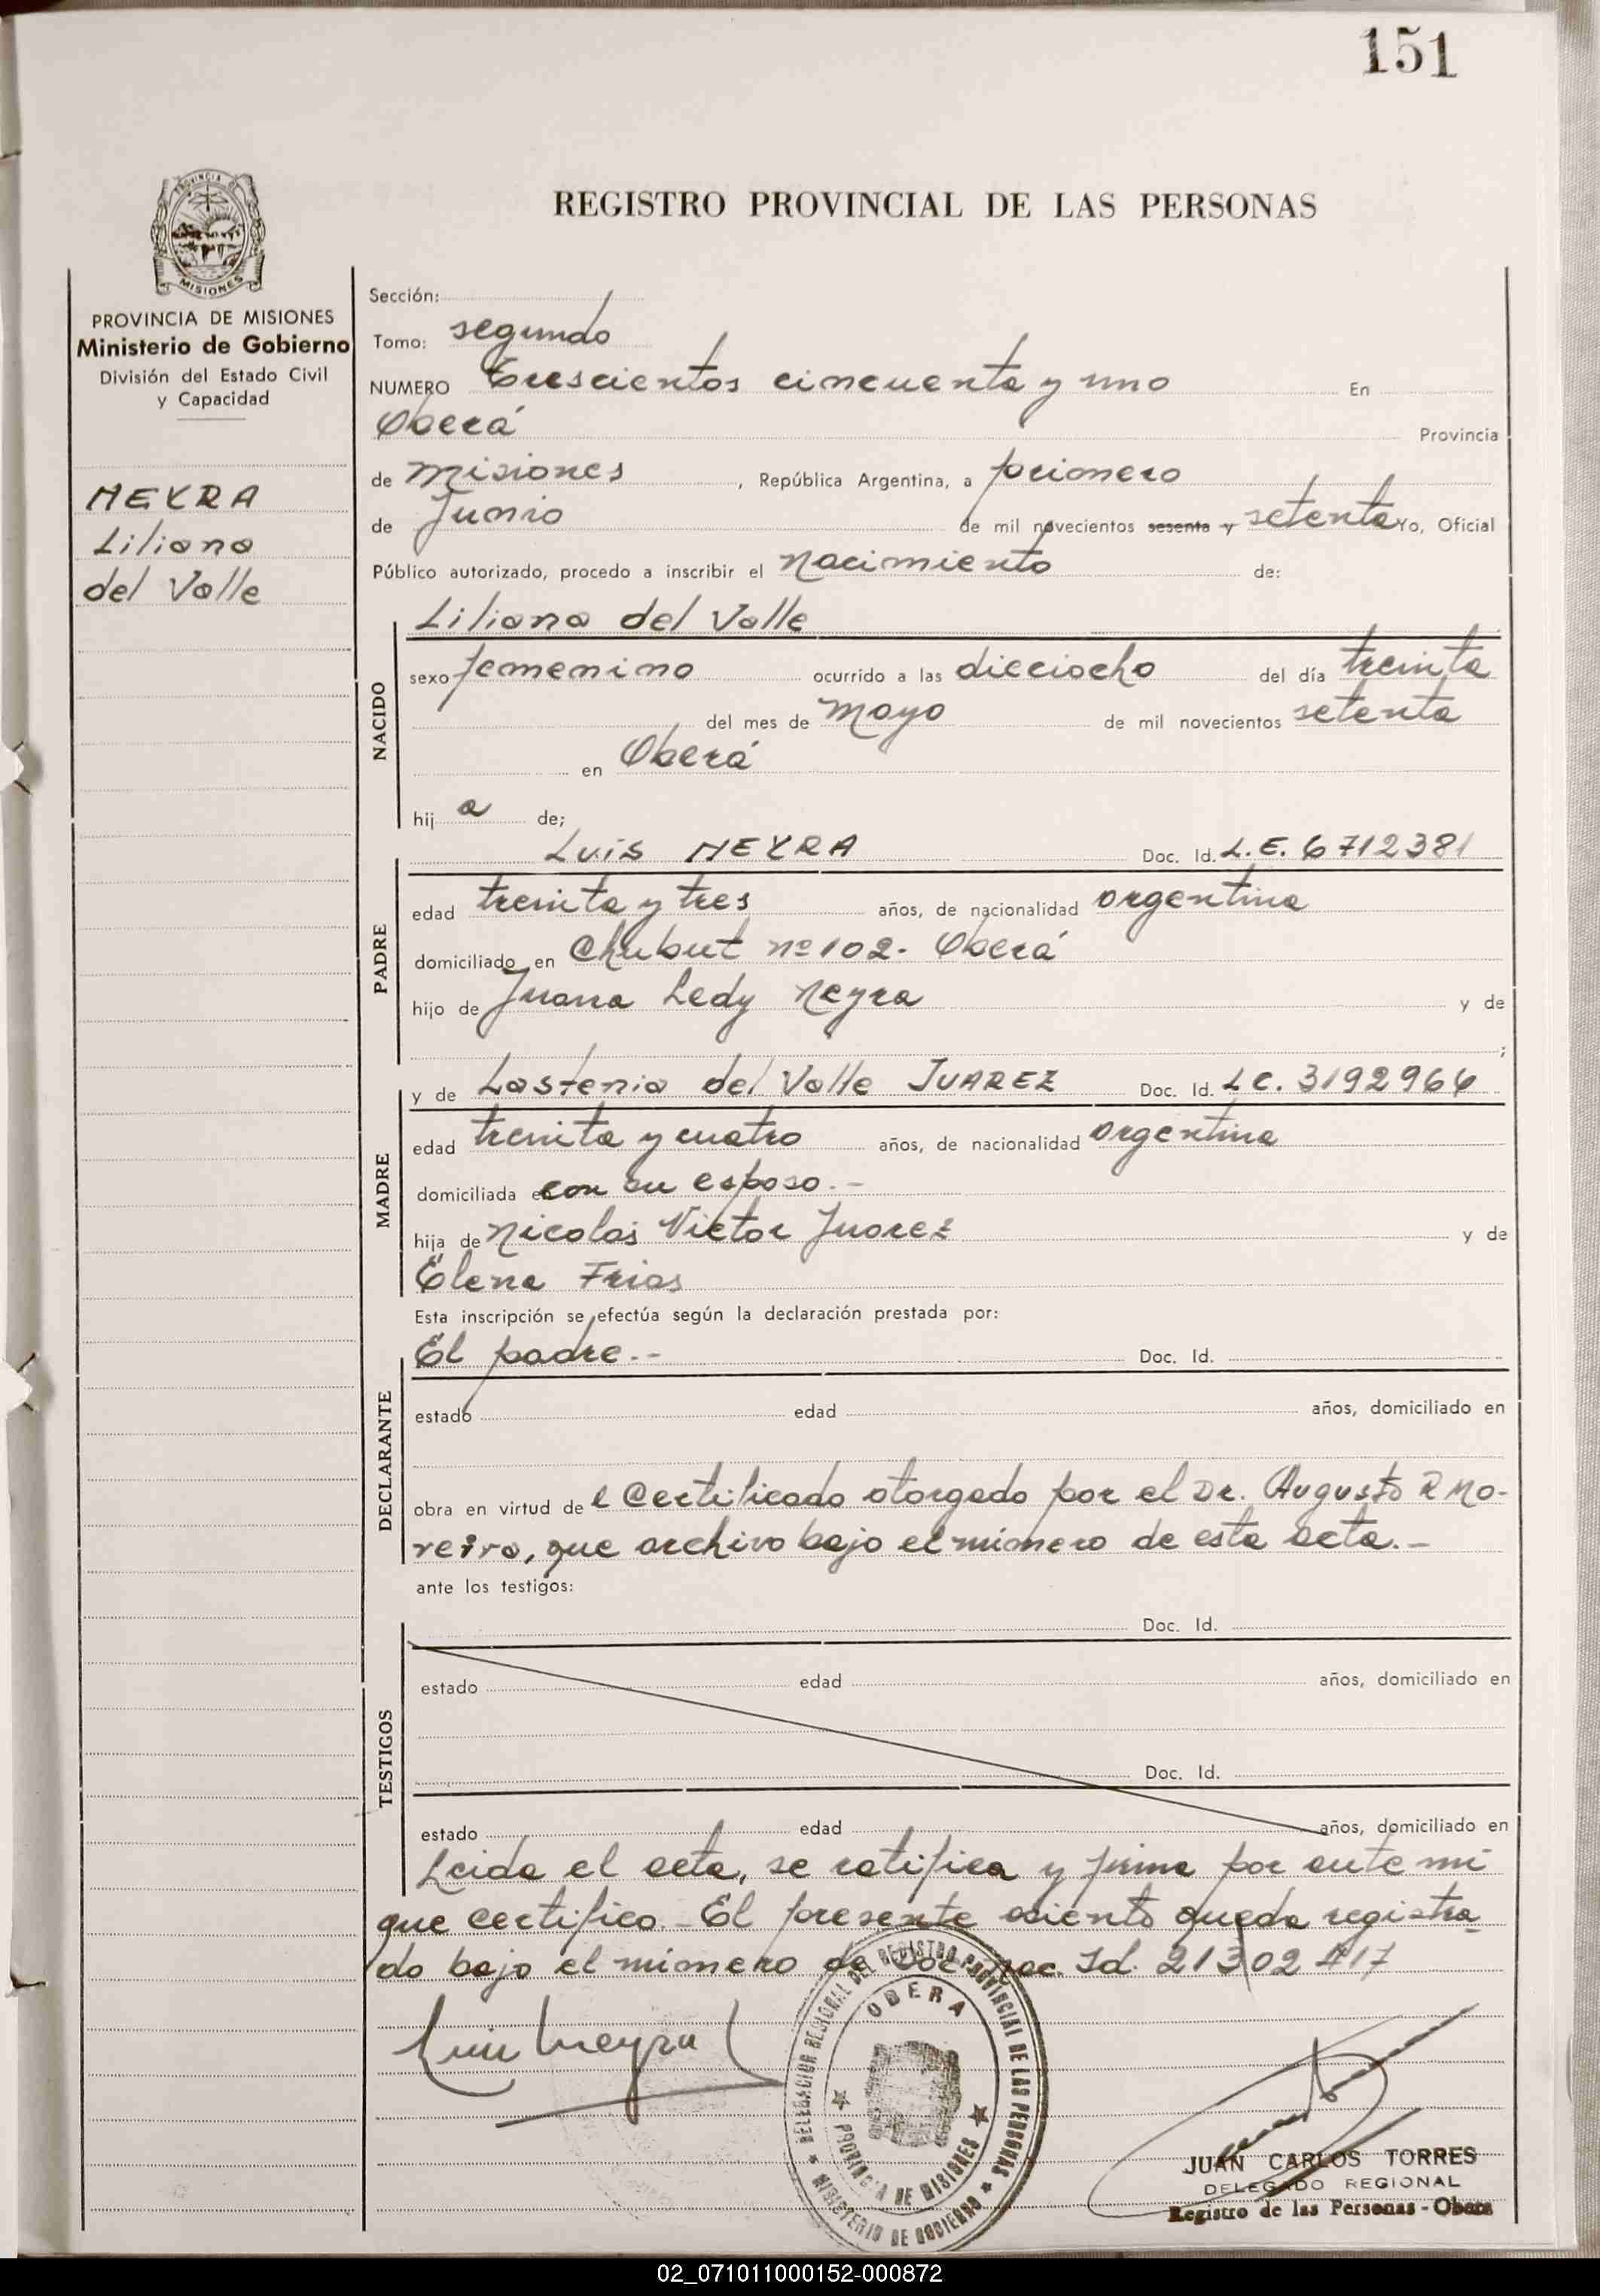 151
REGISTRO PROVINCIAL DE LAS PERSONAS
PROVINCIA DE
MISIONES
PROVINCIA DE MISIONES
Ministerio de Gobierno
División del Estado Civil
y Capacidad
NEYRA
Liliana
del Valle
Sección:
Tomo: segundo
NUMERO Trescientos cincuenta y uno En
Oberá Provincia
de Misiones, República Argentina, a primero
de Junio de mil novecientos sesenta y setenta Yo, Oficial
Público autorizado, procedo a inscribir el nacimiento de:
Liliana del Valle
NACIDO
sexo femenino ocurrido a las dieciocho del día treinta
del mes de Mayo de mil novecientos setenta
en Oberá
hij a de;
Luis NEYRA Doc. Id. L.E. 6712381
PADRE
edad treinta y tres años, de nacionalidad argentina
domiciliado en Chubut nº 102- Oberá
hijo de Juana Ledy Neyra y de
;
y de Lastenia del Valle JUAREZ Doc. Id. LC. 3192964
MADRE
edad treinta y cuatro años, de nacionalidad argentina
domiciliada en con su esposo.-
hija de Nicolás Victor Juarez y de
Elena Frias
Esta inscripción se efectúa según la declaración prestada por:
El padre.-- Doc. Id.
DECLARANTE
estado edad años, domiciliado en
obra en virtud de l Certificado otorgado por el Dr. Augusto R Mo-
reira, que archivo bajo el número de esta acta.-
ante los testigos:
Doc. Id.
TESTIGOS
estado edad años, domiciliado en
Doc. Id.
estado edad años, domiciliado en
Leida el acta, se ratifica y firma por ante mi
que certifico.- El presente asiento queda registra-
do bajo el número de Doc. Nac. Id. 21302 417
Luis Neyra
DELEGACION REGIONAL DEL REGISTRO PROVINCIAL DE LAS PERSONAS
OBERA
PROVINCIA DE MISIONES
MINISTERIO DE GOBIERNO
JUAN CARLOS TORRES
DELEGADO REGIONAL
Registro de las Personas - Obera
02_071011000152-000872